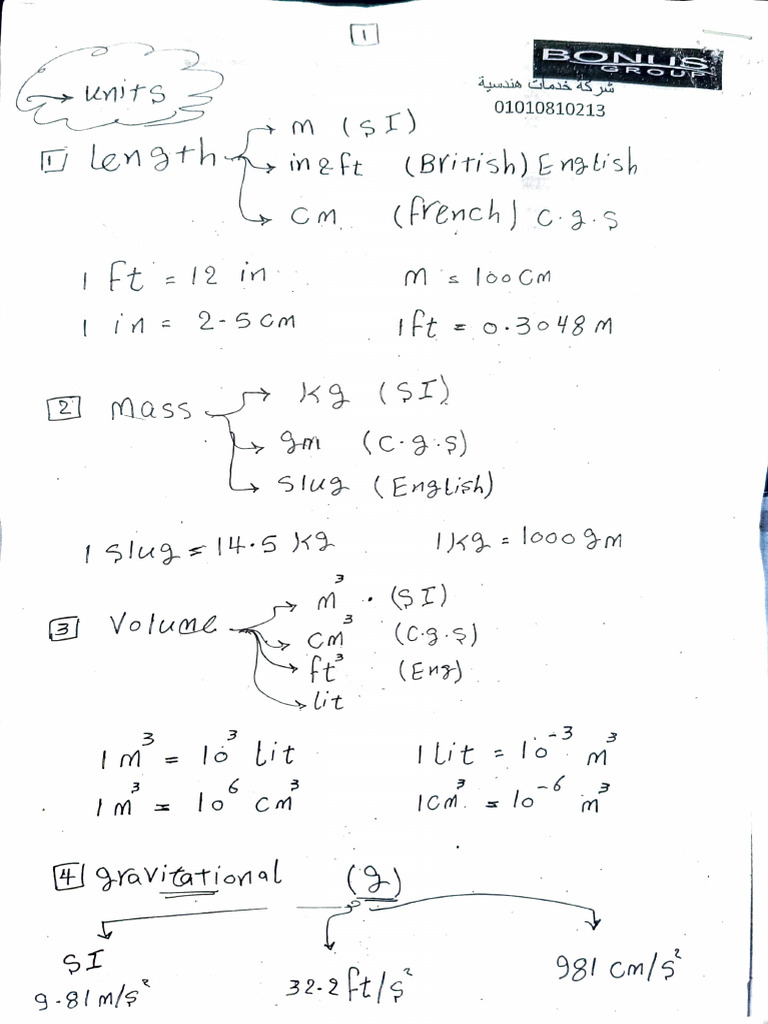 1
BONUS
GROUP
شركة خدمات هندسية
01010810213
units
1 Length → m (SI)
→ in & ft (British) English
→ cm (french) c.g.s
1 ft = 12 in m = 100 cm
1 in = 2.5 cm 1 ft = 0.3048 m
2 Mass → kg (SI)
→ gm (c.g.s)
→ slug (English)
1 slug = 14.5 kg 1 kg = 1000 gm
3 Volume → m³ . (SI)
→ cm³ (c.g.s)
→ ft³ (Eng)
→ lit
1 m³ = 10³ Lit 1 Lit = 10⁻³ m³
1 m³ = 10⁶ cm³ 1 cm³ = 10⁻⁶ m³
4 gravitational (g)
SI
9.81 m/s² 32.2 ft/s² 981 cm/s²